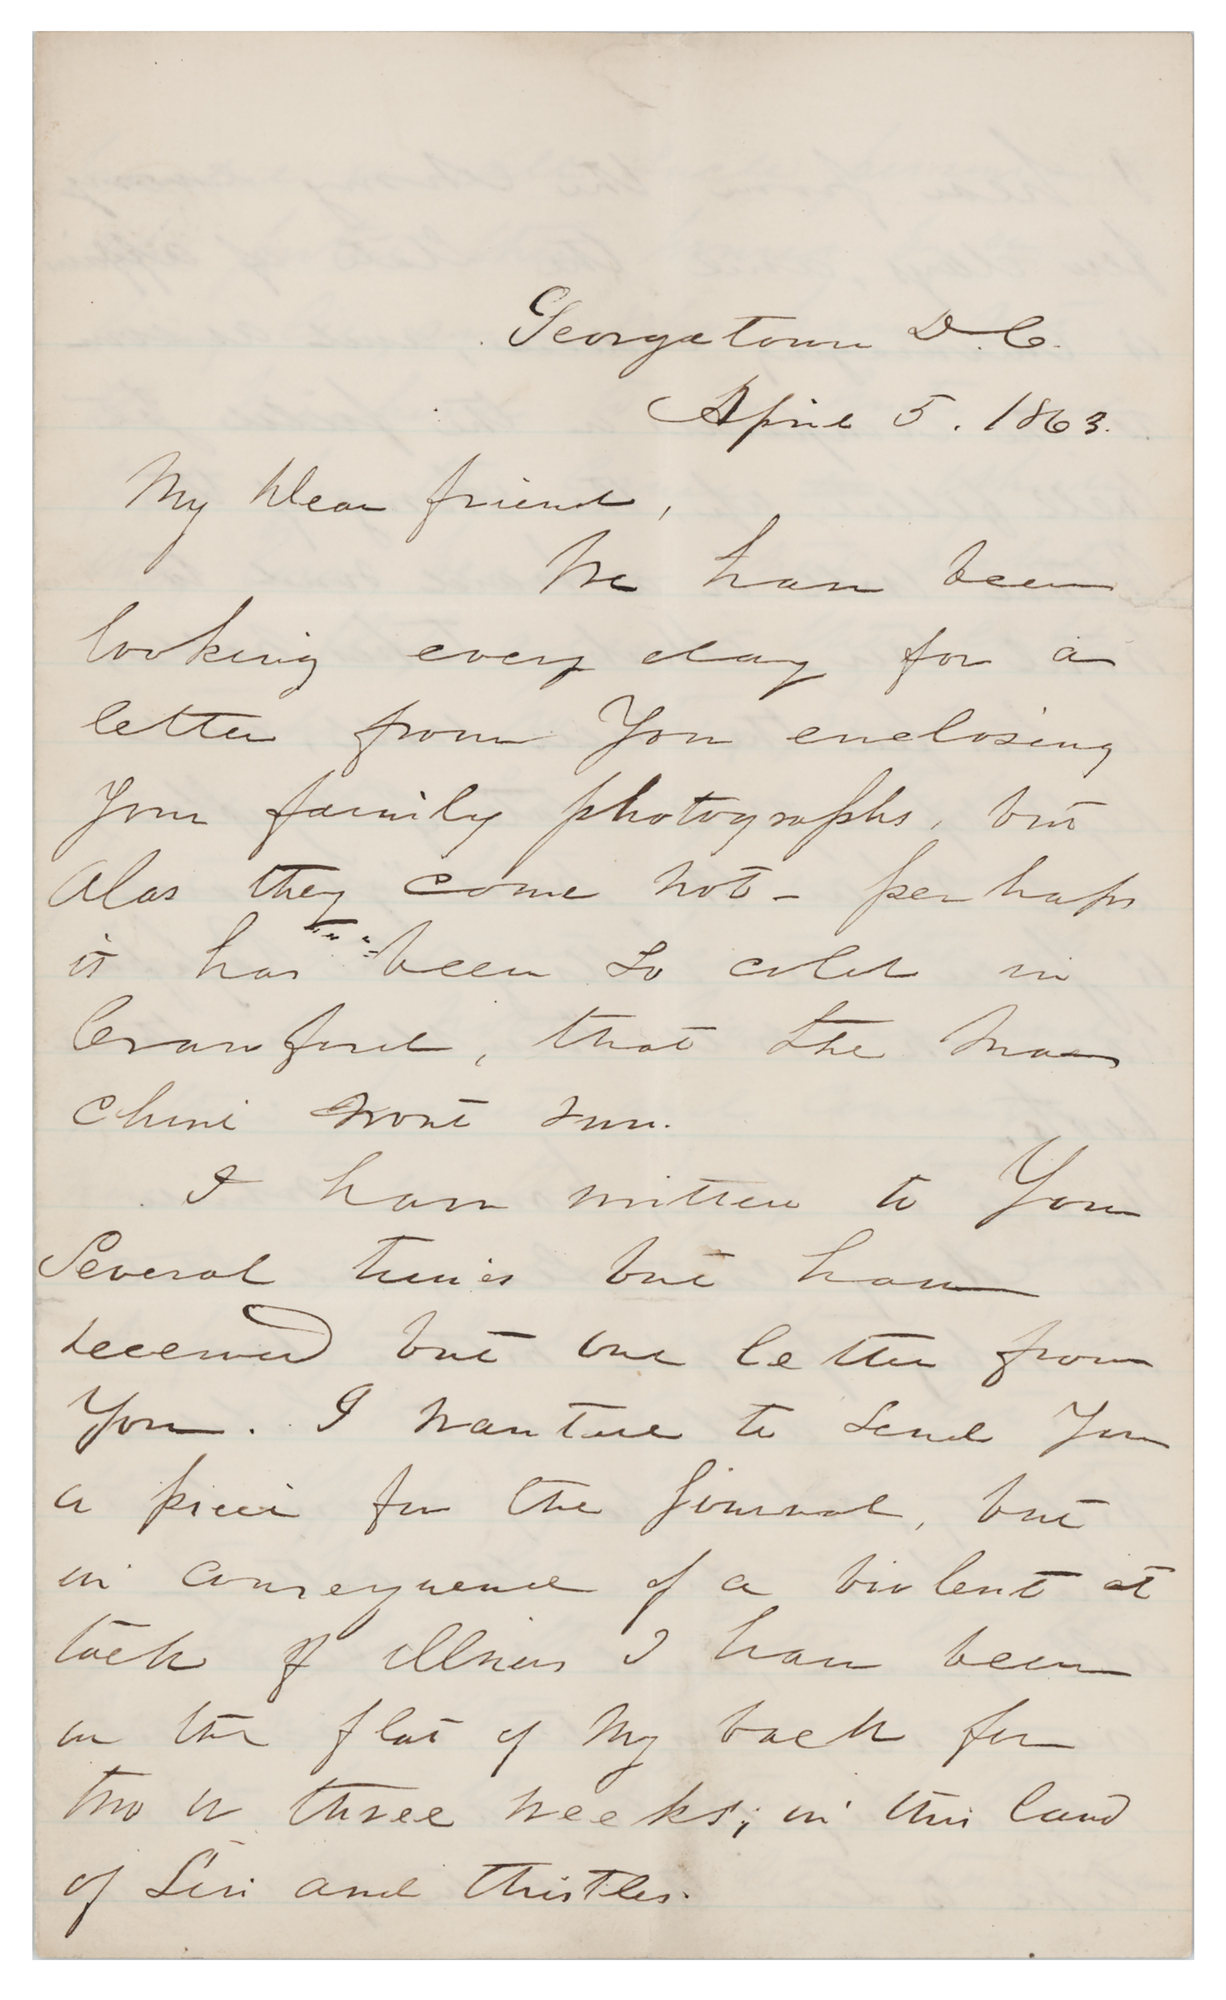 Georgetown D.C.
April 5. 1863.
My Dear friend,
We have been
looking every day for a
letter from You enclosing
Your family photographs, but
Alas they come not - perhaps
it has been so cold in
Crawford, that the ma
chine wont run.
I have written to You
Several times but have
received but one letter from
You. I wanted to send You
a piece for the Journal, but
in consequence of a violent at
tack of illness I have been
on the flat of my back for
two or three weeks; in this land
of Sin and thistles.